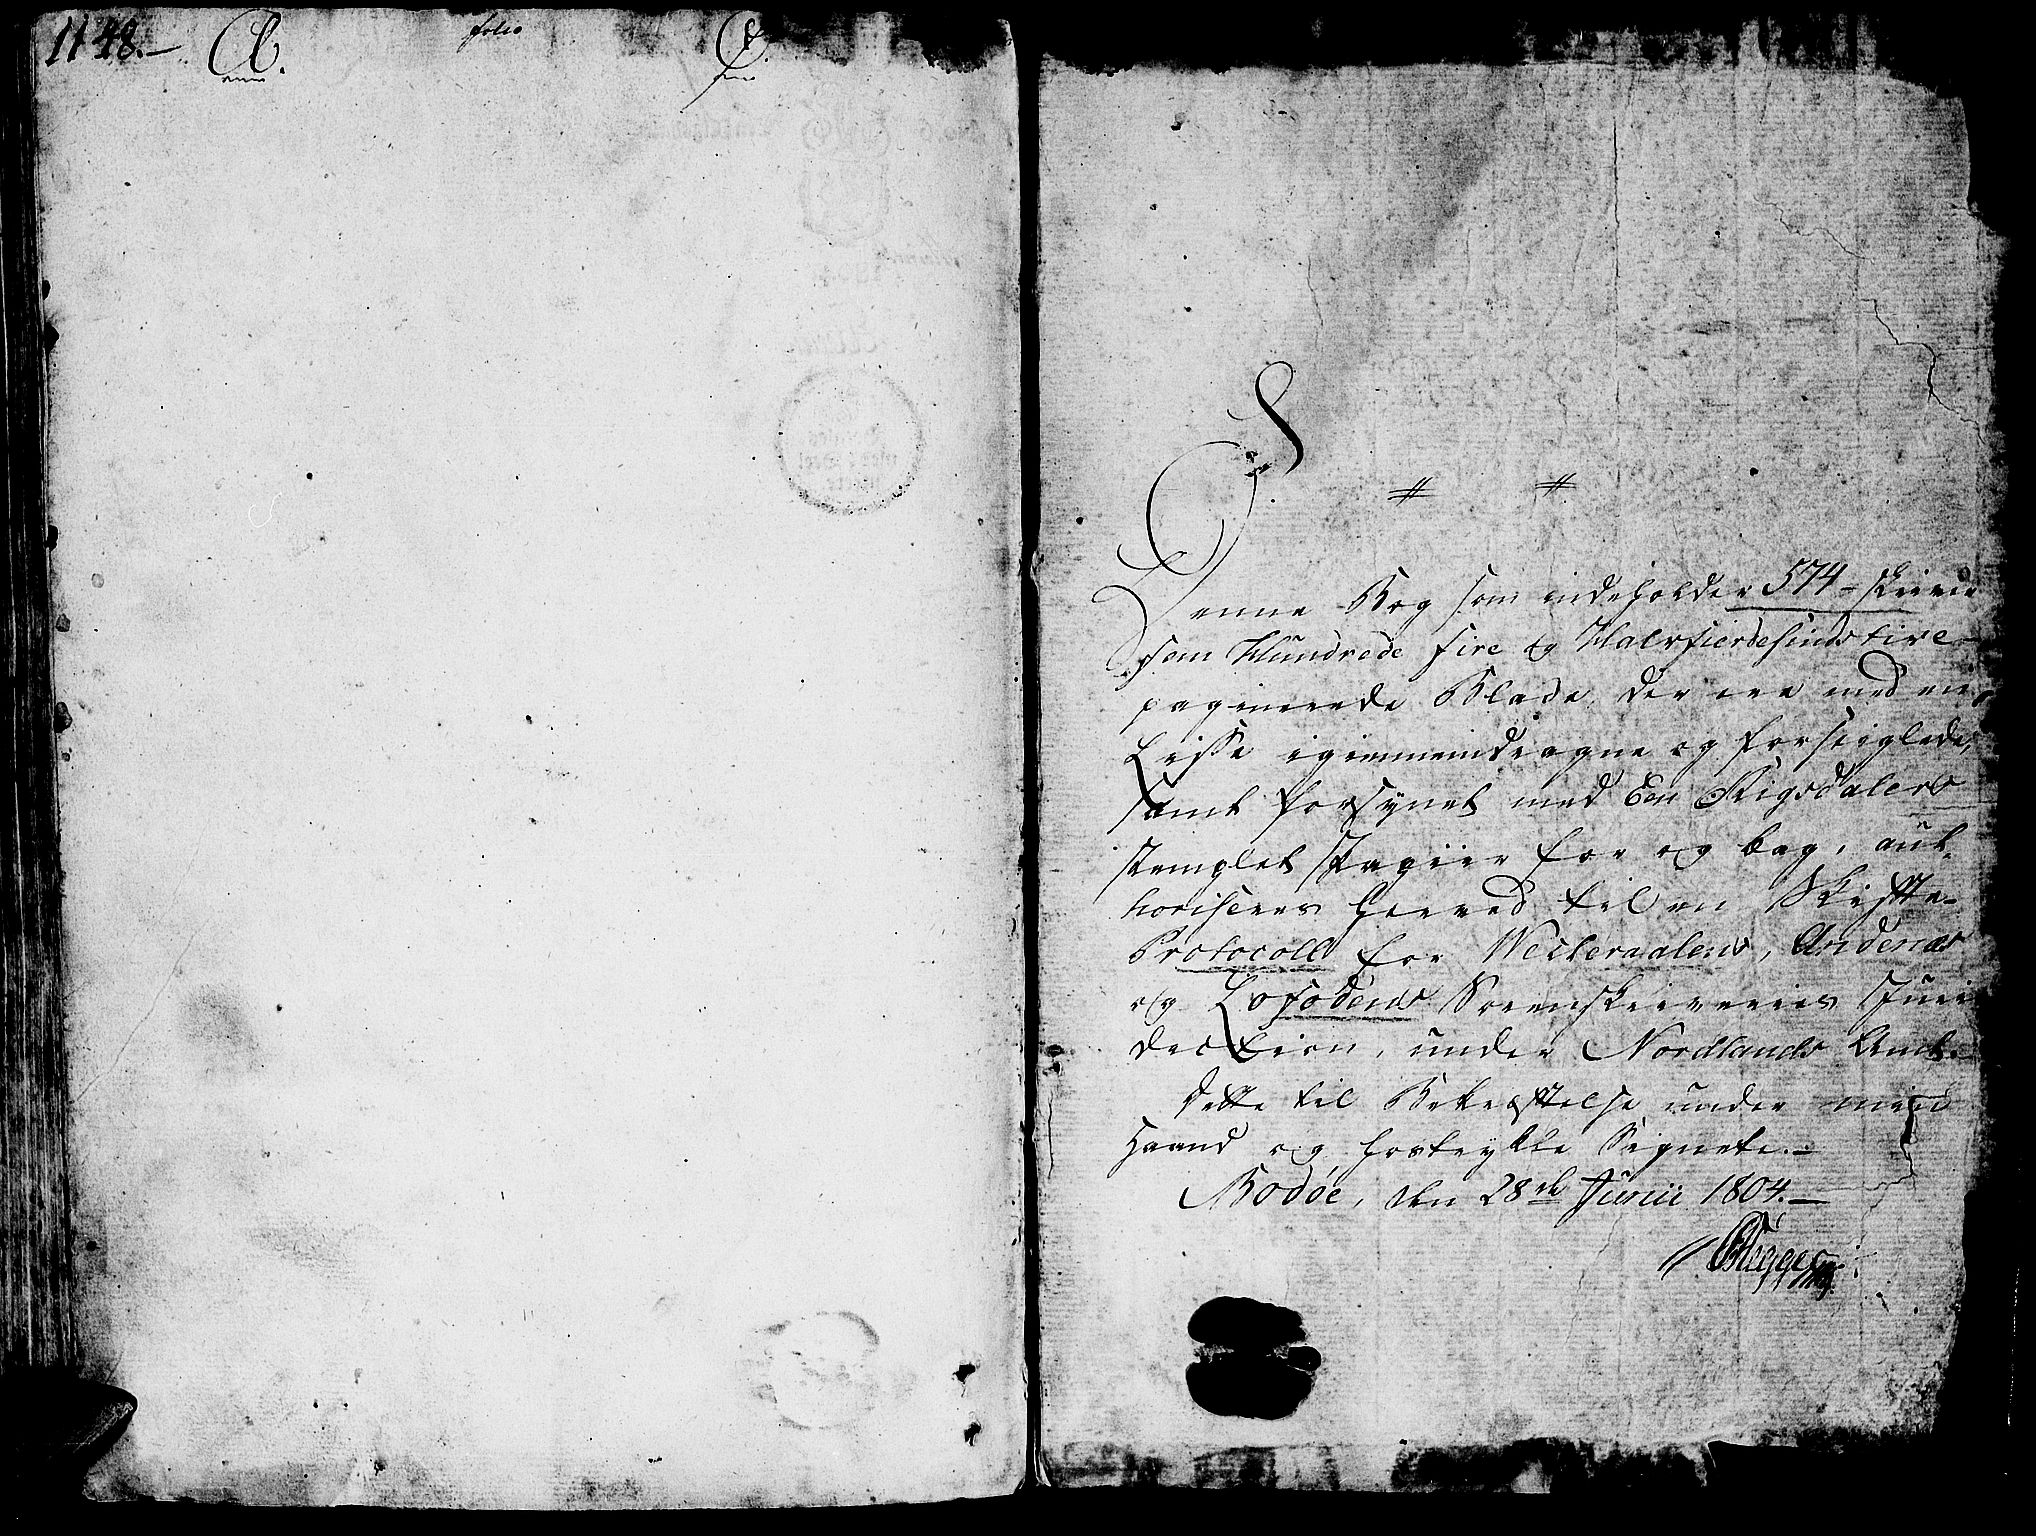 1148.
folio
Denne Bog som indeholder 574 - skrive
fem Hundrede fire og Halvfierdesinds tive
paginerede Blade, der ere med en
Lisse igiennemdragne og forseiglede,
samt forsynet med Een Rigsdalers
stemplet Papiir for og bag, aut-
horiseres herved til en Skifte-
Protocoll for Westeraalens, Andenæs
og Lofodens Sorenskriveries Juris
diction, under Nordlands Amt.
Dette til Bekræftelse under min
Haand og hostrykte Signete.
Bodøe, den 28de Junii 1804.